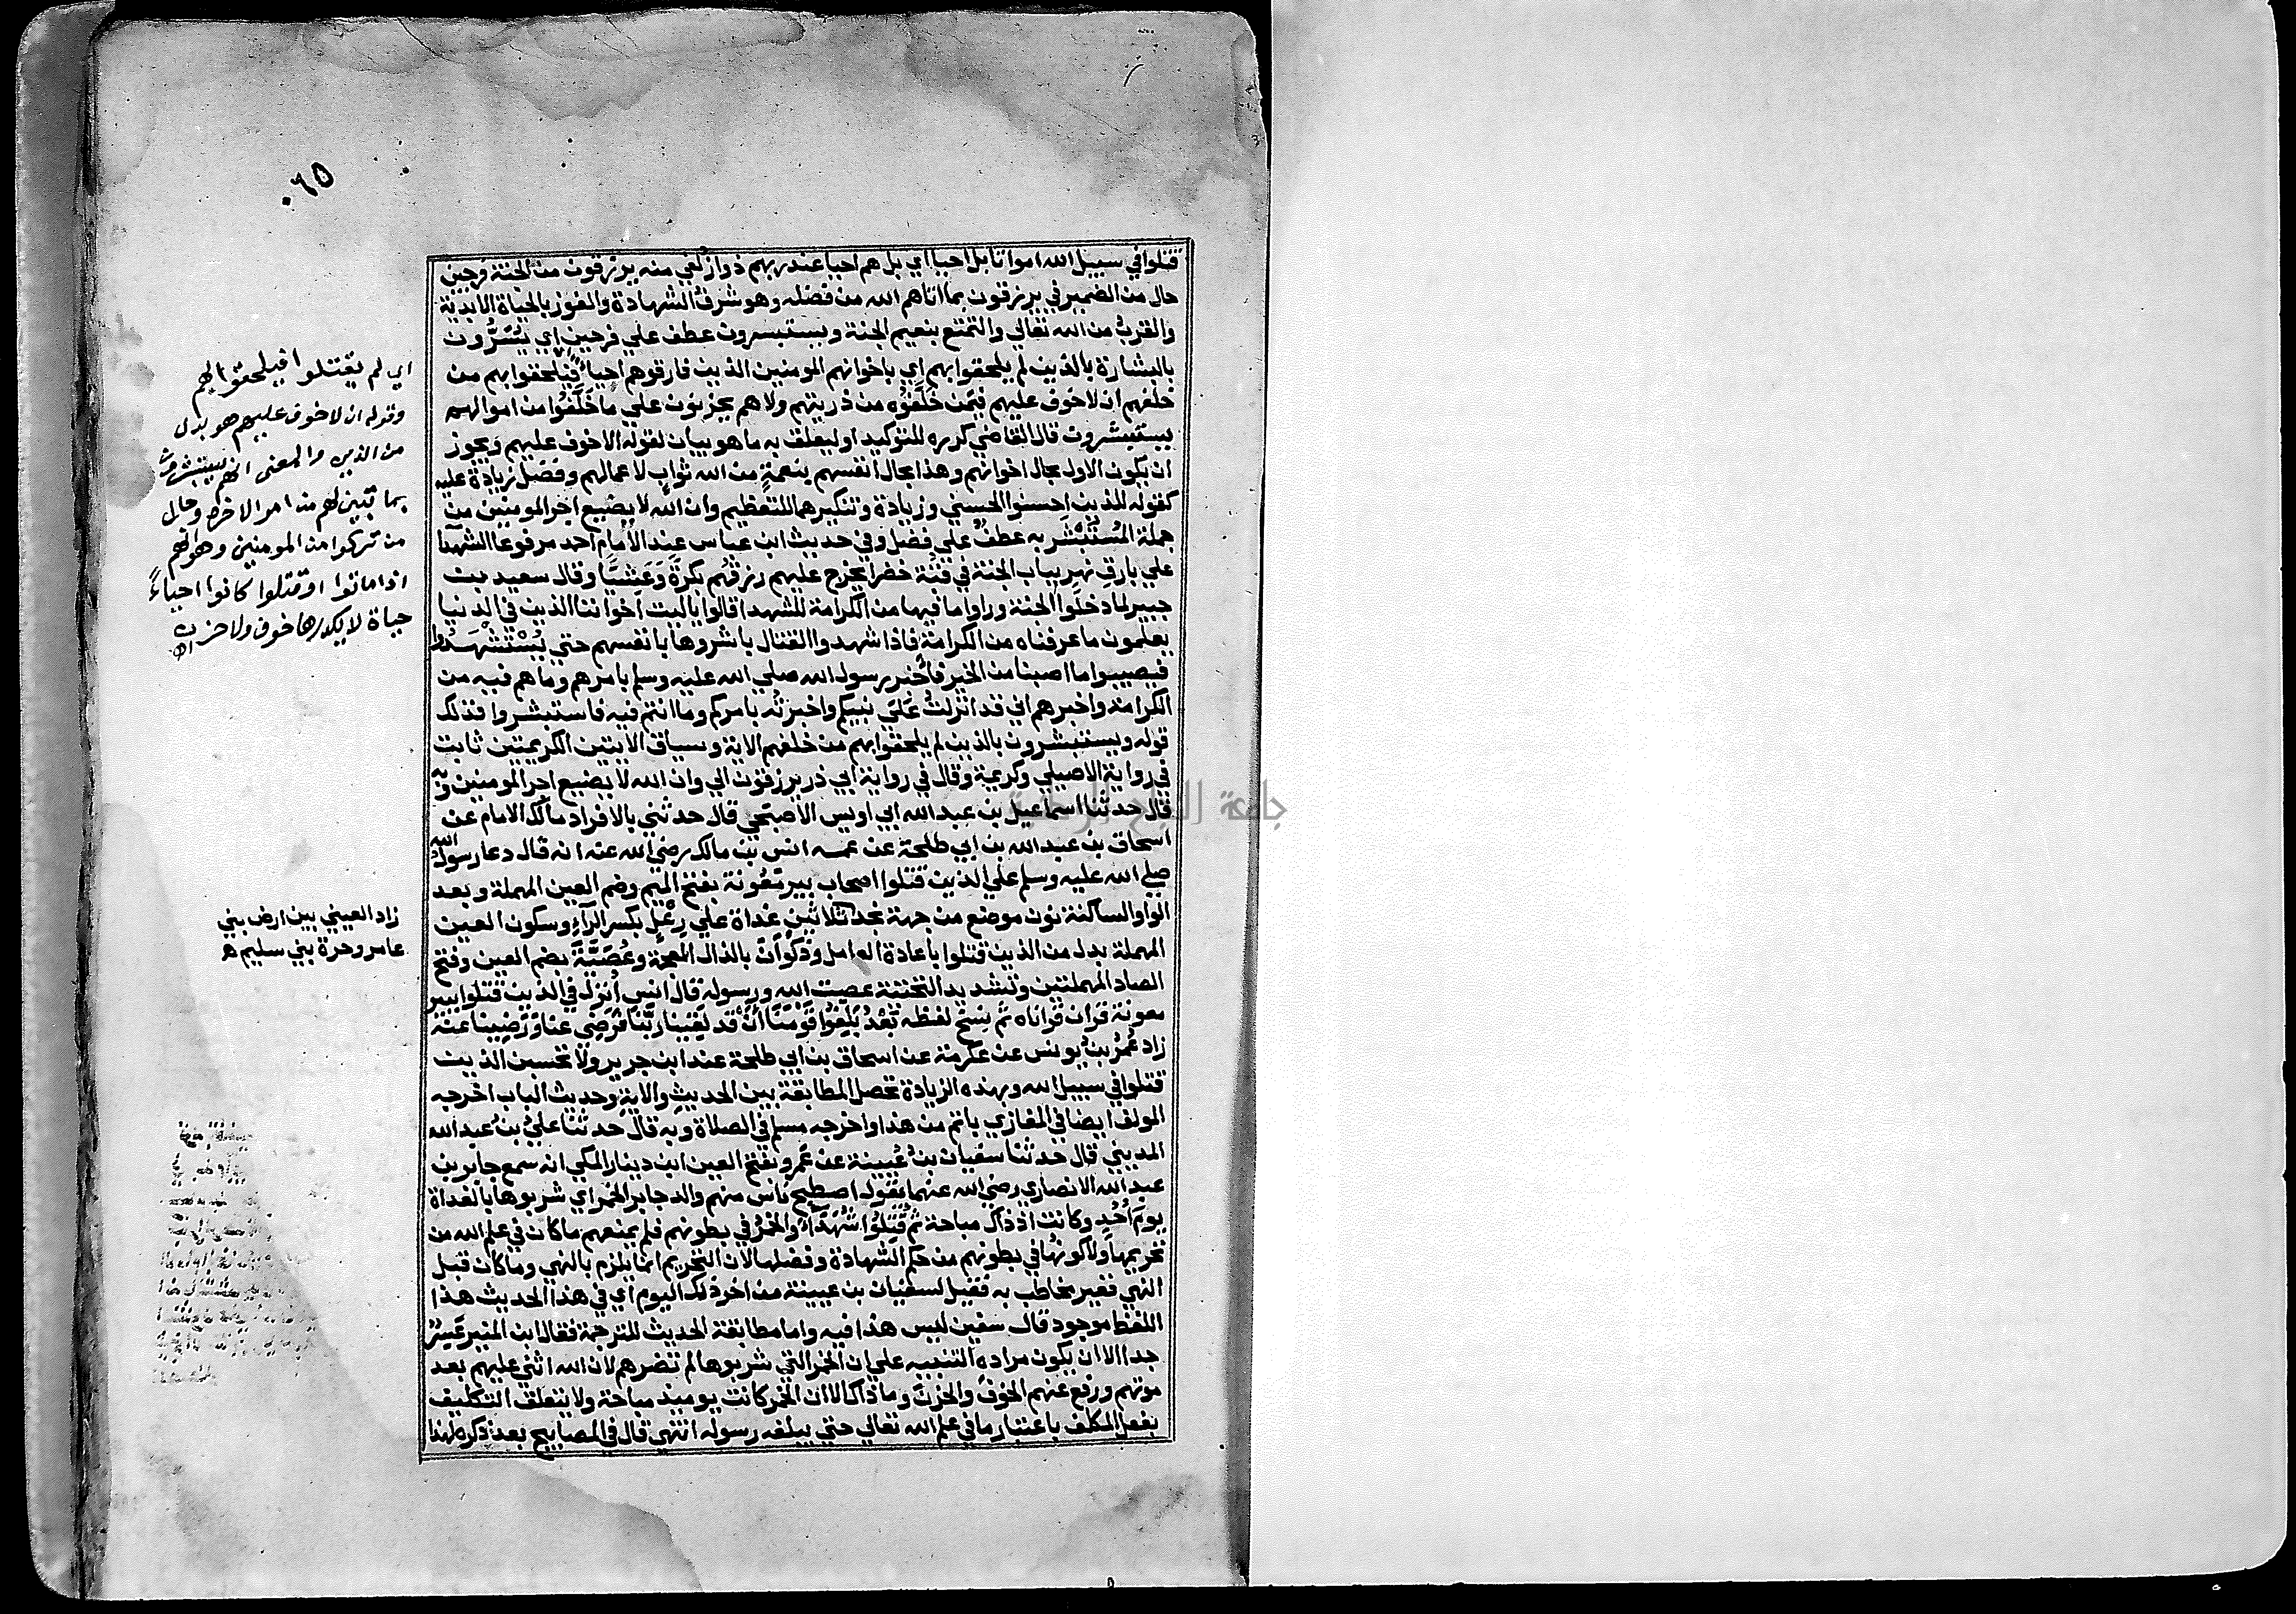 ٠٦٥
قتلوا في سبيل الله امواتا بل احيا اي بل هم احيا عند ربهم ذوا زلفي منه يرزقون من الجنة فرحين
حال من الضمير في يرزقون بما اتاهم الله من فضله وهو شرف الشهادة والفوز بالحياة الابدية
والقرب من الله تعالي والتمتع بنعيم الجنة ويستبشرون عطف علي فرحين اي يُسَرُّون
بالبشارة بالذين لم يلحقوا بهم اي باخوانهم المومنين الذين فارقوهم احياء فيلحقوا بهم من
خلفهم ان لا خوف عليهم فيمن خَلَّفُوه من ذريتهم ولا هم يحزنون علي ما خَلَّفُوا من اموالهم
يستبشرون قال القاضي كرره للتوكيد او ليعلق به ما هو بيان لقوله الا خوف عليهم ويجوز
ان يكون الاول بحال اخوانهم وهذا بحال انفسهم بنعمةٍ من الله ثواب لاعمالهم وفضل زيادة عليه
كقوله للذين احسنوا الحسني وزيادة وتنكيرهما للتعظيم وان الله لا يضيع اجر المومنين من
جملة المُسْتَبْشَر به عطفٌ علي فضل وفي حديث ابن عباس عند الامام احمد مرفوعا الشهدآ
علي بارق نهر بباب الجنة في قبة خضرا يخرج عليهم رزقهم بكرةً وَعَشيًّا وقال سعيد بن
جبير لما دخلوا الجنة وراوا ما فيها من الكرامة للشهدا قالوا ياليت اخواننا الذين في الدنيا
يعلمون ما عرفناه من الكرامة فاذا شهدوا القتال باشروها بانفسهم حتي يُسْتَشْهَدُوا
فيصيبوا ما اصبنا من الخير فاُخبر رسول الله صلي الله عليه وسلم بامرهم وما هم فيه من
الكرامة واخبرهم اني قد انزلتُ عَلَيَ نبيكم واخبرتُه بامركم وما انتم فيه فاستبشروا فذلك
قوله ويستبشرون بالذين لم يلحقوا بهم من خلفهم الاية وسياق الايتين الكريمتين ثابت
في رواية الاصيلي وكريمة وقال في رواية ابي ذر يرزقون الي وان الله لا يضيع اجر المومنين وبه
قال حدثنا اسماعيل بن عبد الله ابي اويس الاصبحي قال حدثني بالافراد مالك الامام عن
اسحاق بن عبد الله بن ابي طلحة عن عمه انس بن مالك رضي الله عنه انه قال دعا رسول الله
صلي الله عليه وسلم علي الذين قتلوا اصحاب بير مَعُونة بفتح الميم وضم العين المهملة وبعد
الواو الساكنة نون موضع من جهة نجد ثلاثين غداة علي رِعْلٍ بكسر الرآءِ وسكون العين
المهملة بدل من الذين قتلوا باعادة العامل وذَكْوانَ بالذال المعجمة وعُصَيَّةَ بضم العين وفتح
الصاد المهملتين وتشديد التحتية عصت الله ورسوله قال انس اُنزل في الذين قتلوا ببير
معونة قران قراناه ثم نسخ لفظه بَعْدُ بَلِّغُوا قَوْمَنَا اَنْ قد لقينا رَبَّنَا فَرَضِيَ عنا وَرَضِينا عنه
زاد عُمَرُ بنُ يونس عن عكرمة عن اسحاق بن ابي طلحة عند ابن جرير ولا تحسبن الذين
قتلوا في سبيل الله وبهذه الزيادة تحصل المطابقة بين الحديث والاية وحديث الباب اخرجه
المولف ايضا في المغازي باتم من هذا واخرجه مسلم في الصلاة وبه قال حدثنا عليُّ بنُ عبد الله
المديني قال حدثنا سفيان بن عُيينة عن عَمرٍو بفتح العين ابن دينار المكي انه سمع جابر بن
عبد الله الانصاري رضي الله عنهما يقول اصطبح ناس منهم والد جابر الخمر اي شربوها بالغداة
يومَ اُحُدٍ وكانت اذ ذاك مباحة ثم قُتِلُوا شُهَدَاءَ والخمرُ في بطونهم فلم يمنعهم ما كان في علم الله من
تحريمها ولا كونُها في بطونهم من حكم الشهادة وفضلها لان التحريم انما يلزم بالنهي وما كان قبل
النهي فغير مخاطب به فقيل لسفيان بن عيينة من اخر ذلك اليوم اي في هذا الحديث هذا
اللفظ موجود قال سفين ليس هذا فيه واما مطابقة الحديث للترجمة فقال ابن المنير عَسِرٌ
جدا الا ان يكون مراده التنبيه علي ان الخمر التي شربوها لم تضرهم لان الله اثني عليهم بعد
موتهم ورفع عنهم الخوف والحزن وما ذاك الا ان الخمر كانت يوميذ مباحة ولا يتعلق التكليف
بفعل المكلف باعتبار ما في علم الله تعالي حتي يبلغه رسوله انتهي قال في المصابيح بعد ذكره لهذا
اي لم يقتلوا فيلحقوا بهم
وقوله ان لا خوف عليهم هو بدل
من الذين والمعني انهم يستبشرون
بما تبين لهم من امر الاخرة وحال
من تركوا من المومنين وهو انهم
اذا ماتوا او قتلوا كانوا احياءً
حياة لا يكدرها خوف ولا حزن اه
زاد العيني بين ارض بني
عامر وحرة بني سليم ه
جامعة النجاح الوطنية